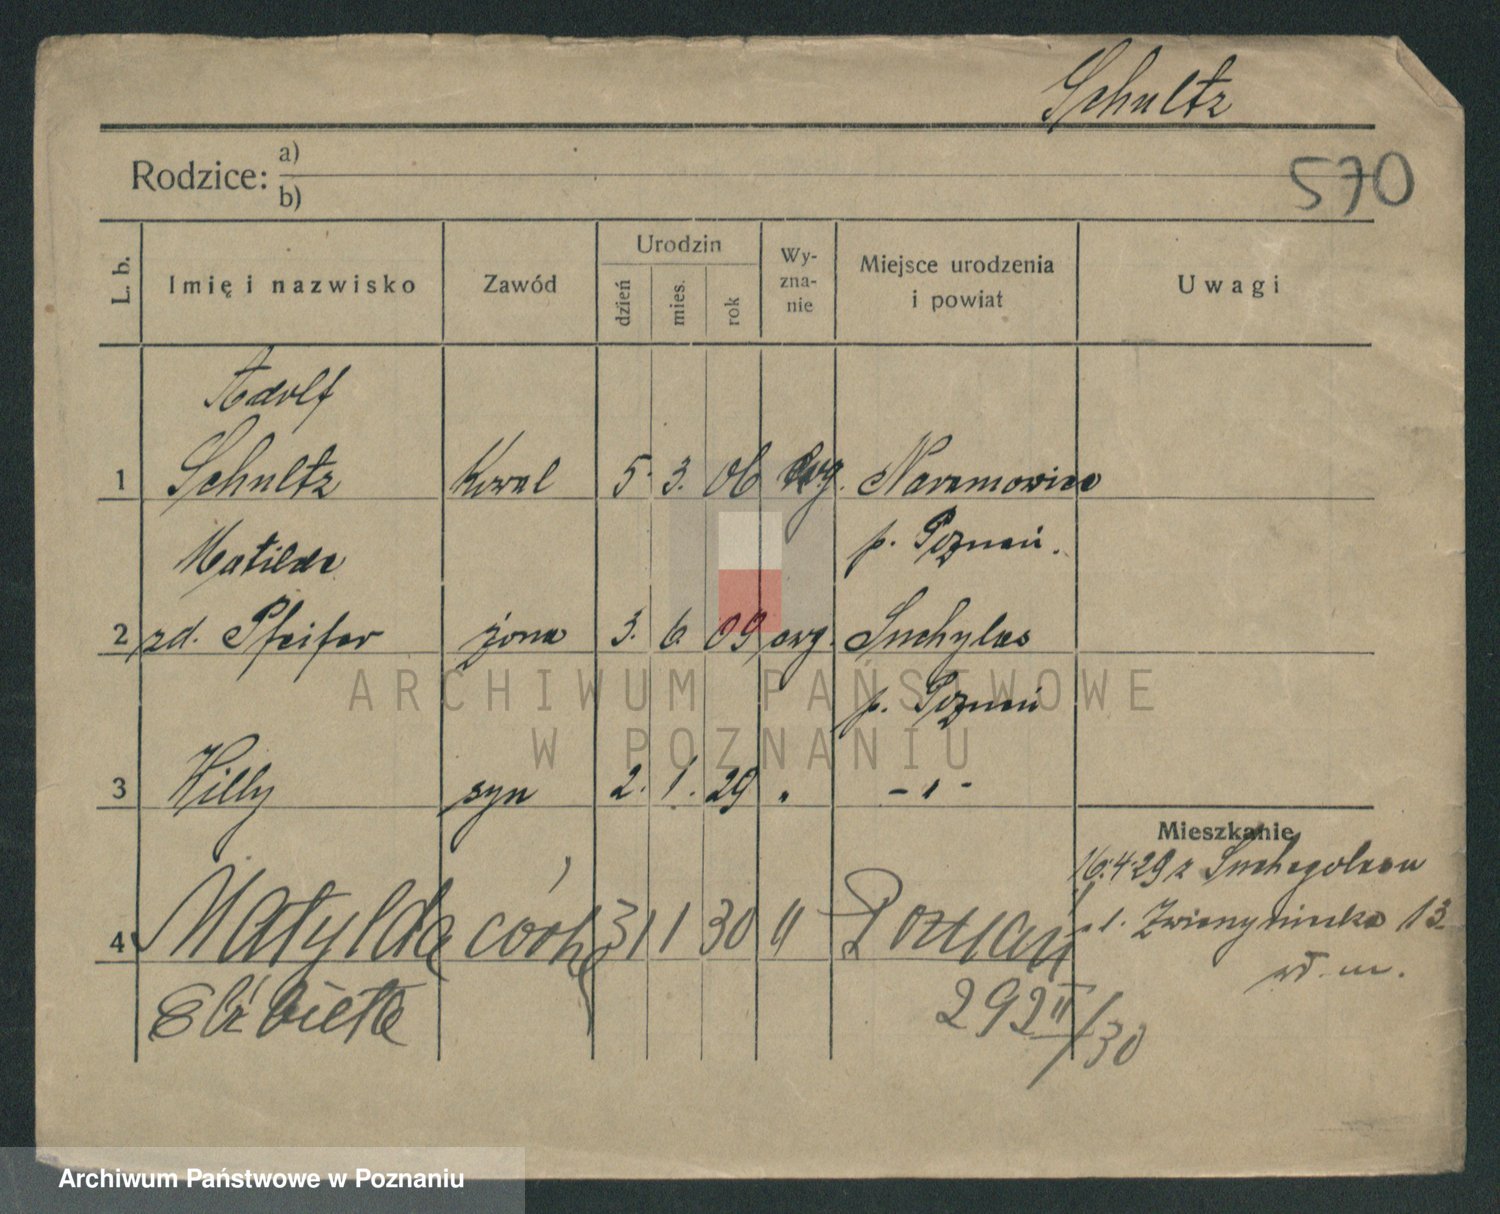 Schultz
570
Rodzice: a)
b)
L. b.
Imię i nazwisko
Zawód
Urodzin
dzień
mies.
rok
Wy-
zna-
nie
Miejsce urodzenia
i powiat
Uwagi
Adolf
1 Schultz kowal 5. 3. 06 ewg. Naramowice
Matilde p. Poznań.
2 zd. Pfeifer żona 3. 6. 09 ewg. Suchylas
p. Poznań
3 Willy syn 2. 1. 29 " - " -
Mieszkanie
16.4.29 z
4 Matylda córka 31 1 30 " Poznań
13
w. m.
Elżbieta 292 II/30
ARCHIWUM PAŃSTWOWE
W POZNANIU
Archiwum Państwowe w Poznaniu